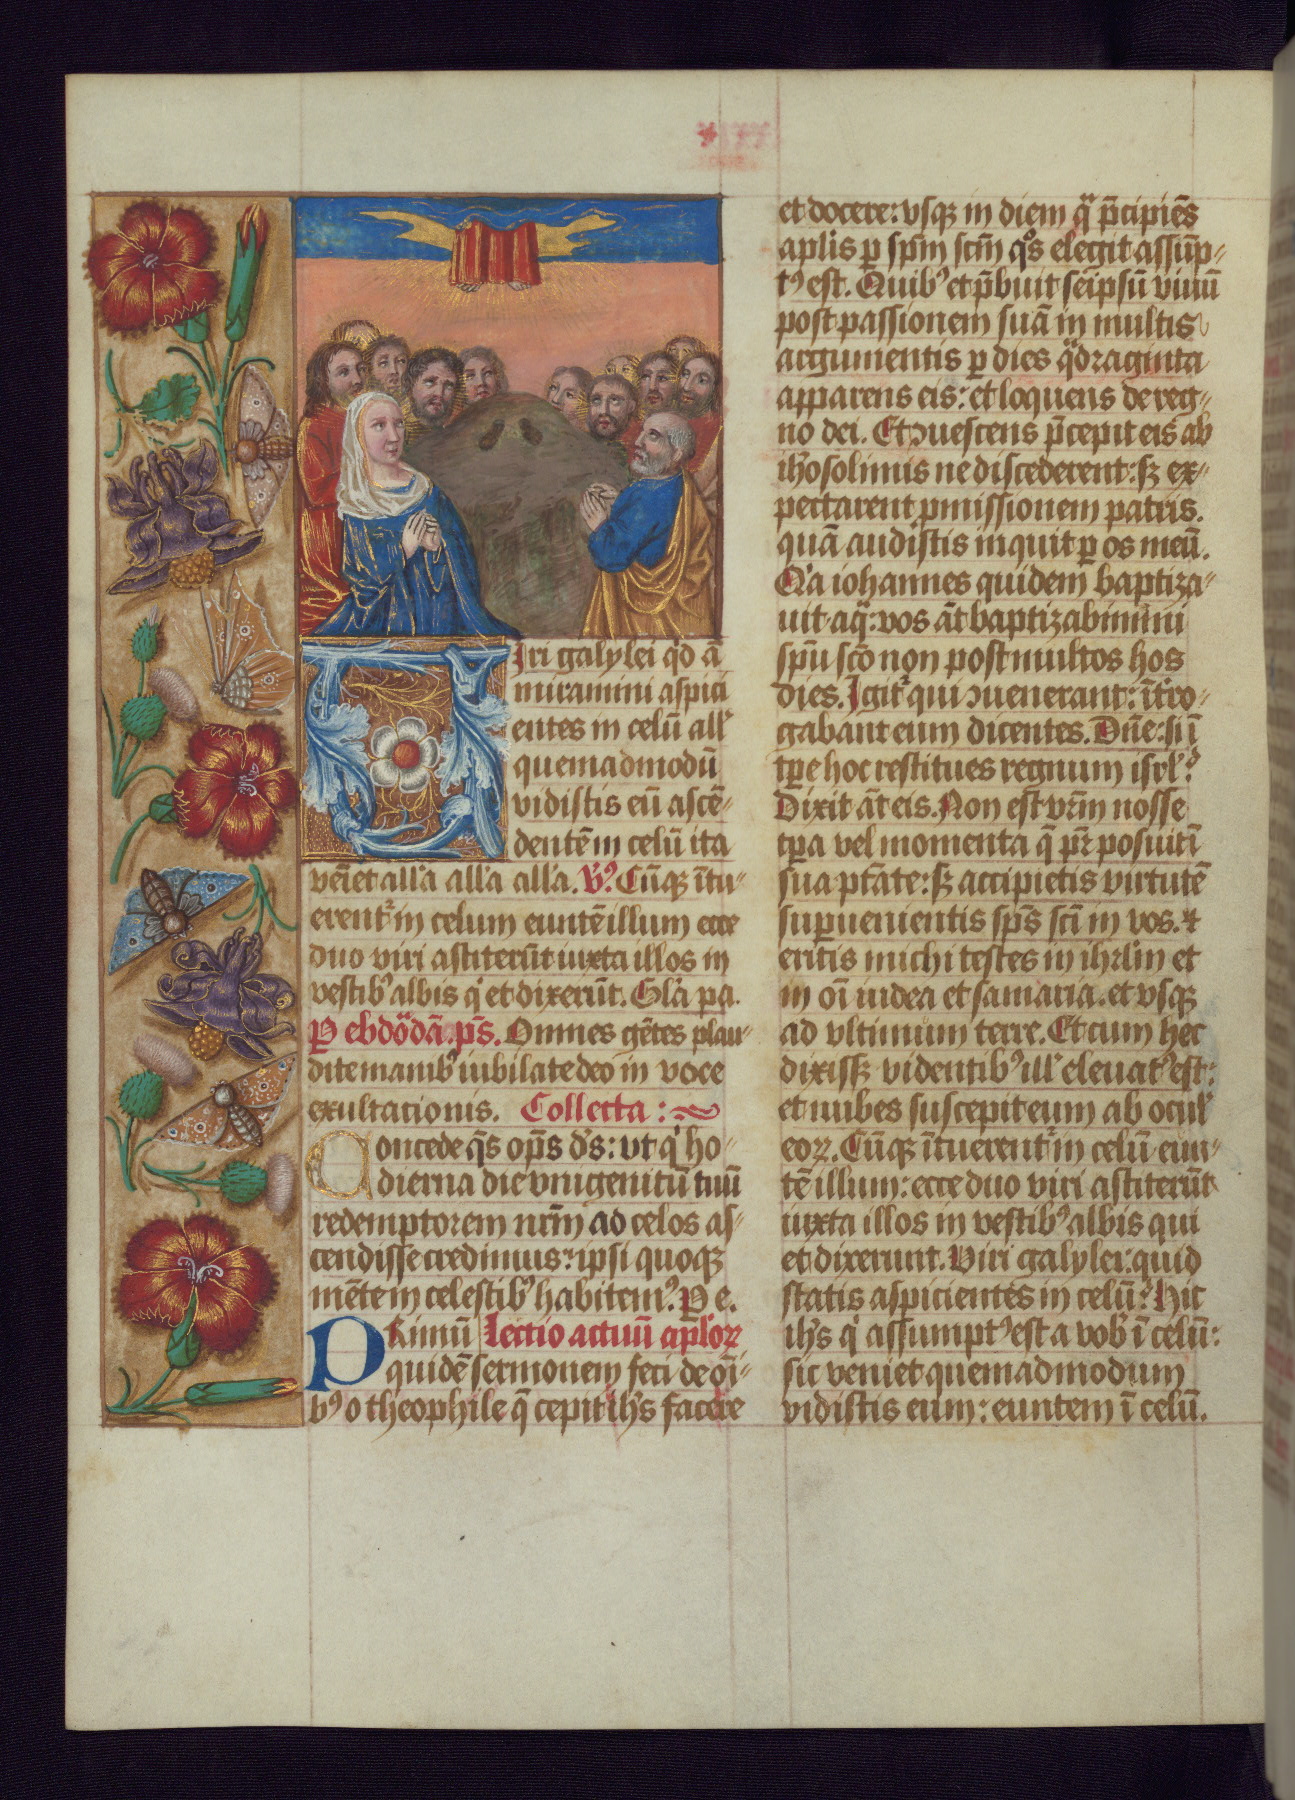 Viri galylei q̇d ā
miramini aspici
entes in celū all'
quemadmodū
vidistis eū ascē-
dentē in celū ita
veīet all'a all'a all'a. V̓. Cūqꝫ ītu-
erent᷑ in celum euntē illum ecce
duo viri astiterūt iuxta illos in
vestibꝰ albis q' et dixerūt. Gl'a pa.
P ebdōdā. ps̄. Omnes gētes plau-
dite manibꝰ iubilate deo in voce
exultationis. Collecta:
Concede q̄s op̄s ds̄: vt q' ho-
dierna die vnigenitū tuū
redemptorem nr̄m ad celos as-
cendisse credimus: ipsi quoqꝫ
mēte in celestibꝰ habitemꝰ. P e.
PRimū Lectio actuū apl'oꝝ
quidē sermonem feci de oī-
bꝰ o theophile q̄ cepit ih̄s facere
et docere: vsqꝫ in diem q̄ p̄cipiēs
aplis p spm̄ scm̄ q̊s elegit assūp-
tꝰ est. Quibꝰ et p̄buit seip̄sū viuū
post passionem suā in multis
argumentis p dies q̈draginta
apparens eis: et loquens de reg-
no dei. Et ꝯuescens p̄cepit eis ab
ih'osolimis ne discederent: sꝫ ex-
pectarent pmissionem patris.
quā audistis inquit p os meū.
Q'a iohannes quidem baptiza-
uit aq̄: vos āt baptizabimini
spū scō non post multos hos
dies. Igit᷑ qui ꝯuenerant: īt'ro-
gabant eum dicentes. Dn̄e: si ī
tp̄e hoc restitues regnum isrl'?
Dixit āt eis. Non est vr̄m nosse
tp̄a vel momenta q̄ pr̄ posuit ī
sua ptāte: sꝫ accipietis virtutē
supuenientis sp̄s sc̄i in vos. ⁊
eritis michi testes in ihrl̄m et
in oī iudea et samaria. et vsqꝫ
ad vltimum terre. Et cum hec
dixissꝫ videntibꝰ ill' eleuatꝰ est:
et nubes suscepit eum ab ocul'
eoꝝ. Cūqꝫ ītuerent᷑ in celū eun-
tē illum: ecce duo viri astiterūt
iuxta illos in vestibꝰ albis qui
et dixerunt. Viri galylei: quid
statis aspicientes in celū? Hic
ih̄s q' assumptꝰ est a vob' ī celū:
sic veniet quemadmodum
vidistis eum: euntem ī celū.